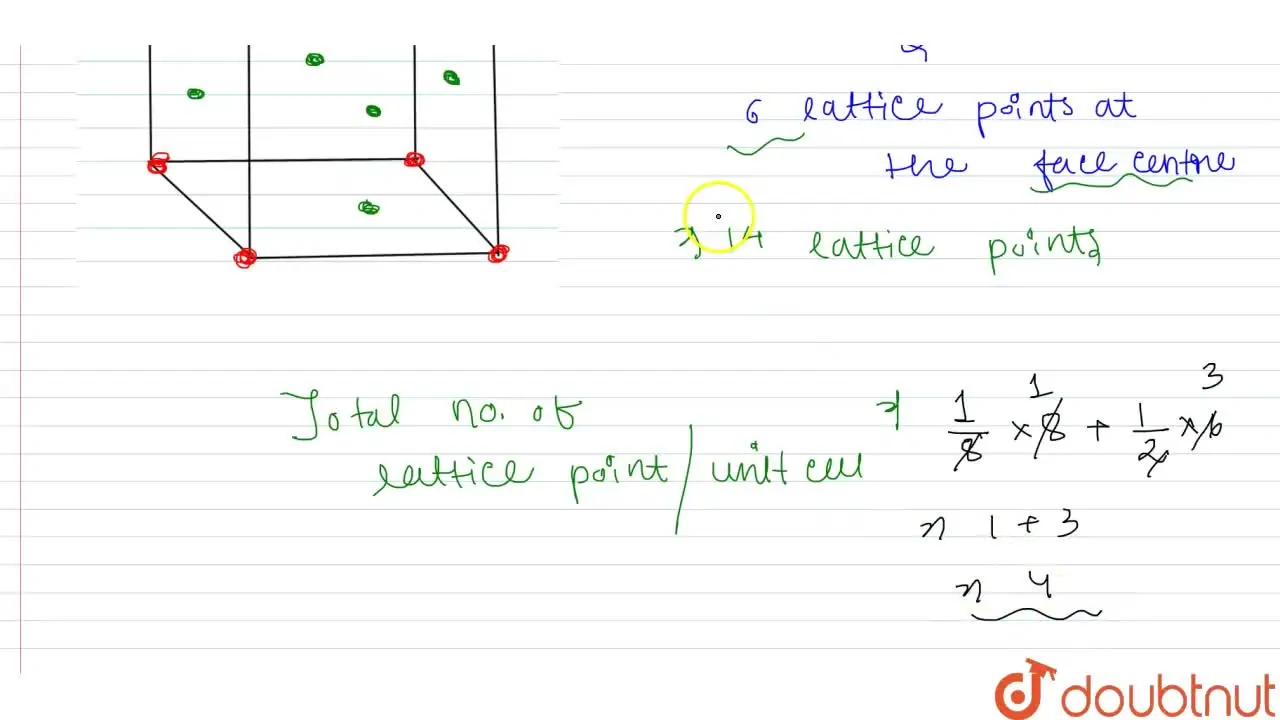 6 lattice points at
the face centre
14 lattice points
Total no. of
lattice point / unit cell
1/8 × 8 + 1/2 × 6
1 3
1 + 3
4
doubtnut